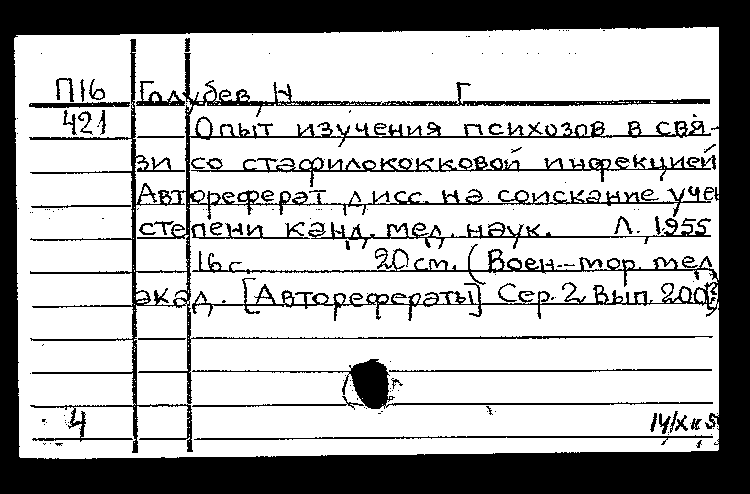 П16 Голубев, Н Г
421 Опыт изучения психозов в свя-
зи со стафилококковой инфекцией
Автореферат дисс. на соискание учен
степени канд. мед. наук. Л. 1955
16 с. 20 ст. (Воен-мор. мед
акад. [Авторефераты] Сер. 2 Вып. 200)
4